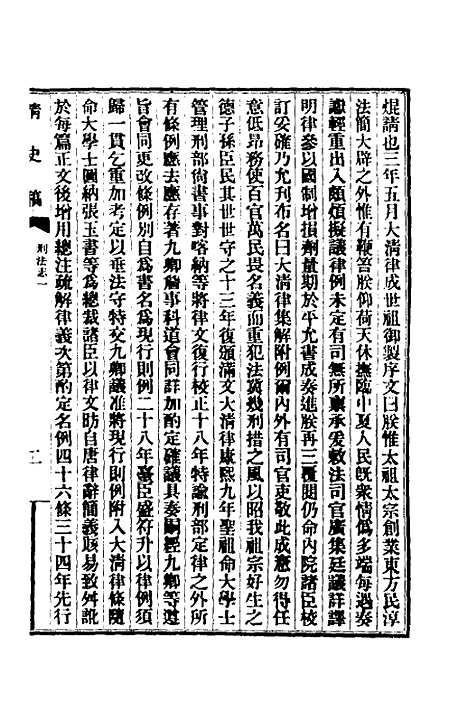 焜請也三年五月大清律成世祖御製序文曰朕惟太祖太宗創業東方民淳
法簡大辟之外惟有鞭笞朕仰荷天休撫臨中夏人民旣衆情僞多端每遇奏
讞輕重出入頗煩擬議律例未定有司無所稟承爰敕法司官廣集廷議詳譯
明律參以國制增損劑量期於平允書成奏進朕再三覆閱仍命內院諸臣校
訂妥確乃允刊布名曰大清律集解附例爾內外有司官吏敬此成憲勿得任
意低昂務使百官萬民畏名義而重犯法冀幾刑措之風以昭我祖宗好生之
德子孫臣民其世世守之十三年復頒滿文大清律康熙九年聖祖命大學士
管理刑部尙書事對喀納等將律文復行校正十八年特諭刑部定律之外所
有條例應去應存著九卿詹事科道會同詳加酌定確議具奏嗣經九卿等遵
旨會同更改條例別自爲書名爲現行則例二十八年臺臣盛符升以律例須
歸一貫乞重加考定以垂法守特交九卿議准將現行則例附入大清律條隨
命大學士圖納張玉書等爲總裁諸臣以律文昉自唐律辭簡義賅易致舛訛
於每篇正文後增用總注疏解律義次第酌定名例四十六條三十四年先行
清史稿 刑法志一 二